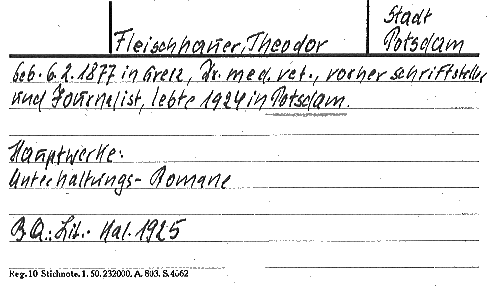 Stadt
Fleischhauer, Theodor Potsdam
geb. 6.2.1877 in Greiz, Dr. med. vet., vorher Schriftsteller
und Journalist, lebte 1924 in Potsdam.
Hauptwerke:
Unterhaltungs-Romane
B.Q.: Lit.-Kal. 1925
Reg. 10 Stichnote. 1. 50. 232000. A. 803. S. 4662